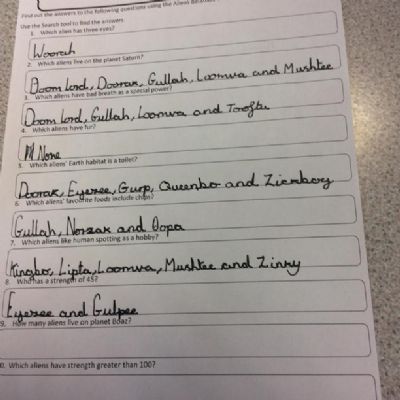 Find out the answers to the following questions using the Aliens Database
Use the Search tool to find the answers.
1. Which alien has three eyes?
Woorah
2. Which aliens live on the planet Saturn?
Doom Lord, Doorak, Gullah, Loomva and Mushtee
3. Which aliens have bad breath as a special power?
Doom Lord, Gullah, Loomva and
4. Which aliens have fur?
None
5. Which aliens' Earth habitat is a toilet?
Doorak, Eyezee, Gurp, Queenbo and
6. Which aliens' favourite foods include chips?
Gullah, Norzak and Oopa
7. Which aliens like human spotting as a hobby?
Kingbo, Lipta, Loomva, Mushtee and Zinny
8. Who has a strength of 45?
Eyezee and Gulpee
9. How many aliens live on planet Boaz?
0. Which aliens have strength greater than 100?